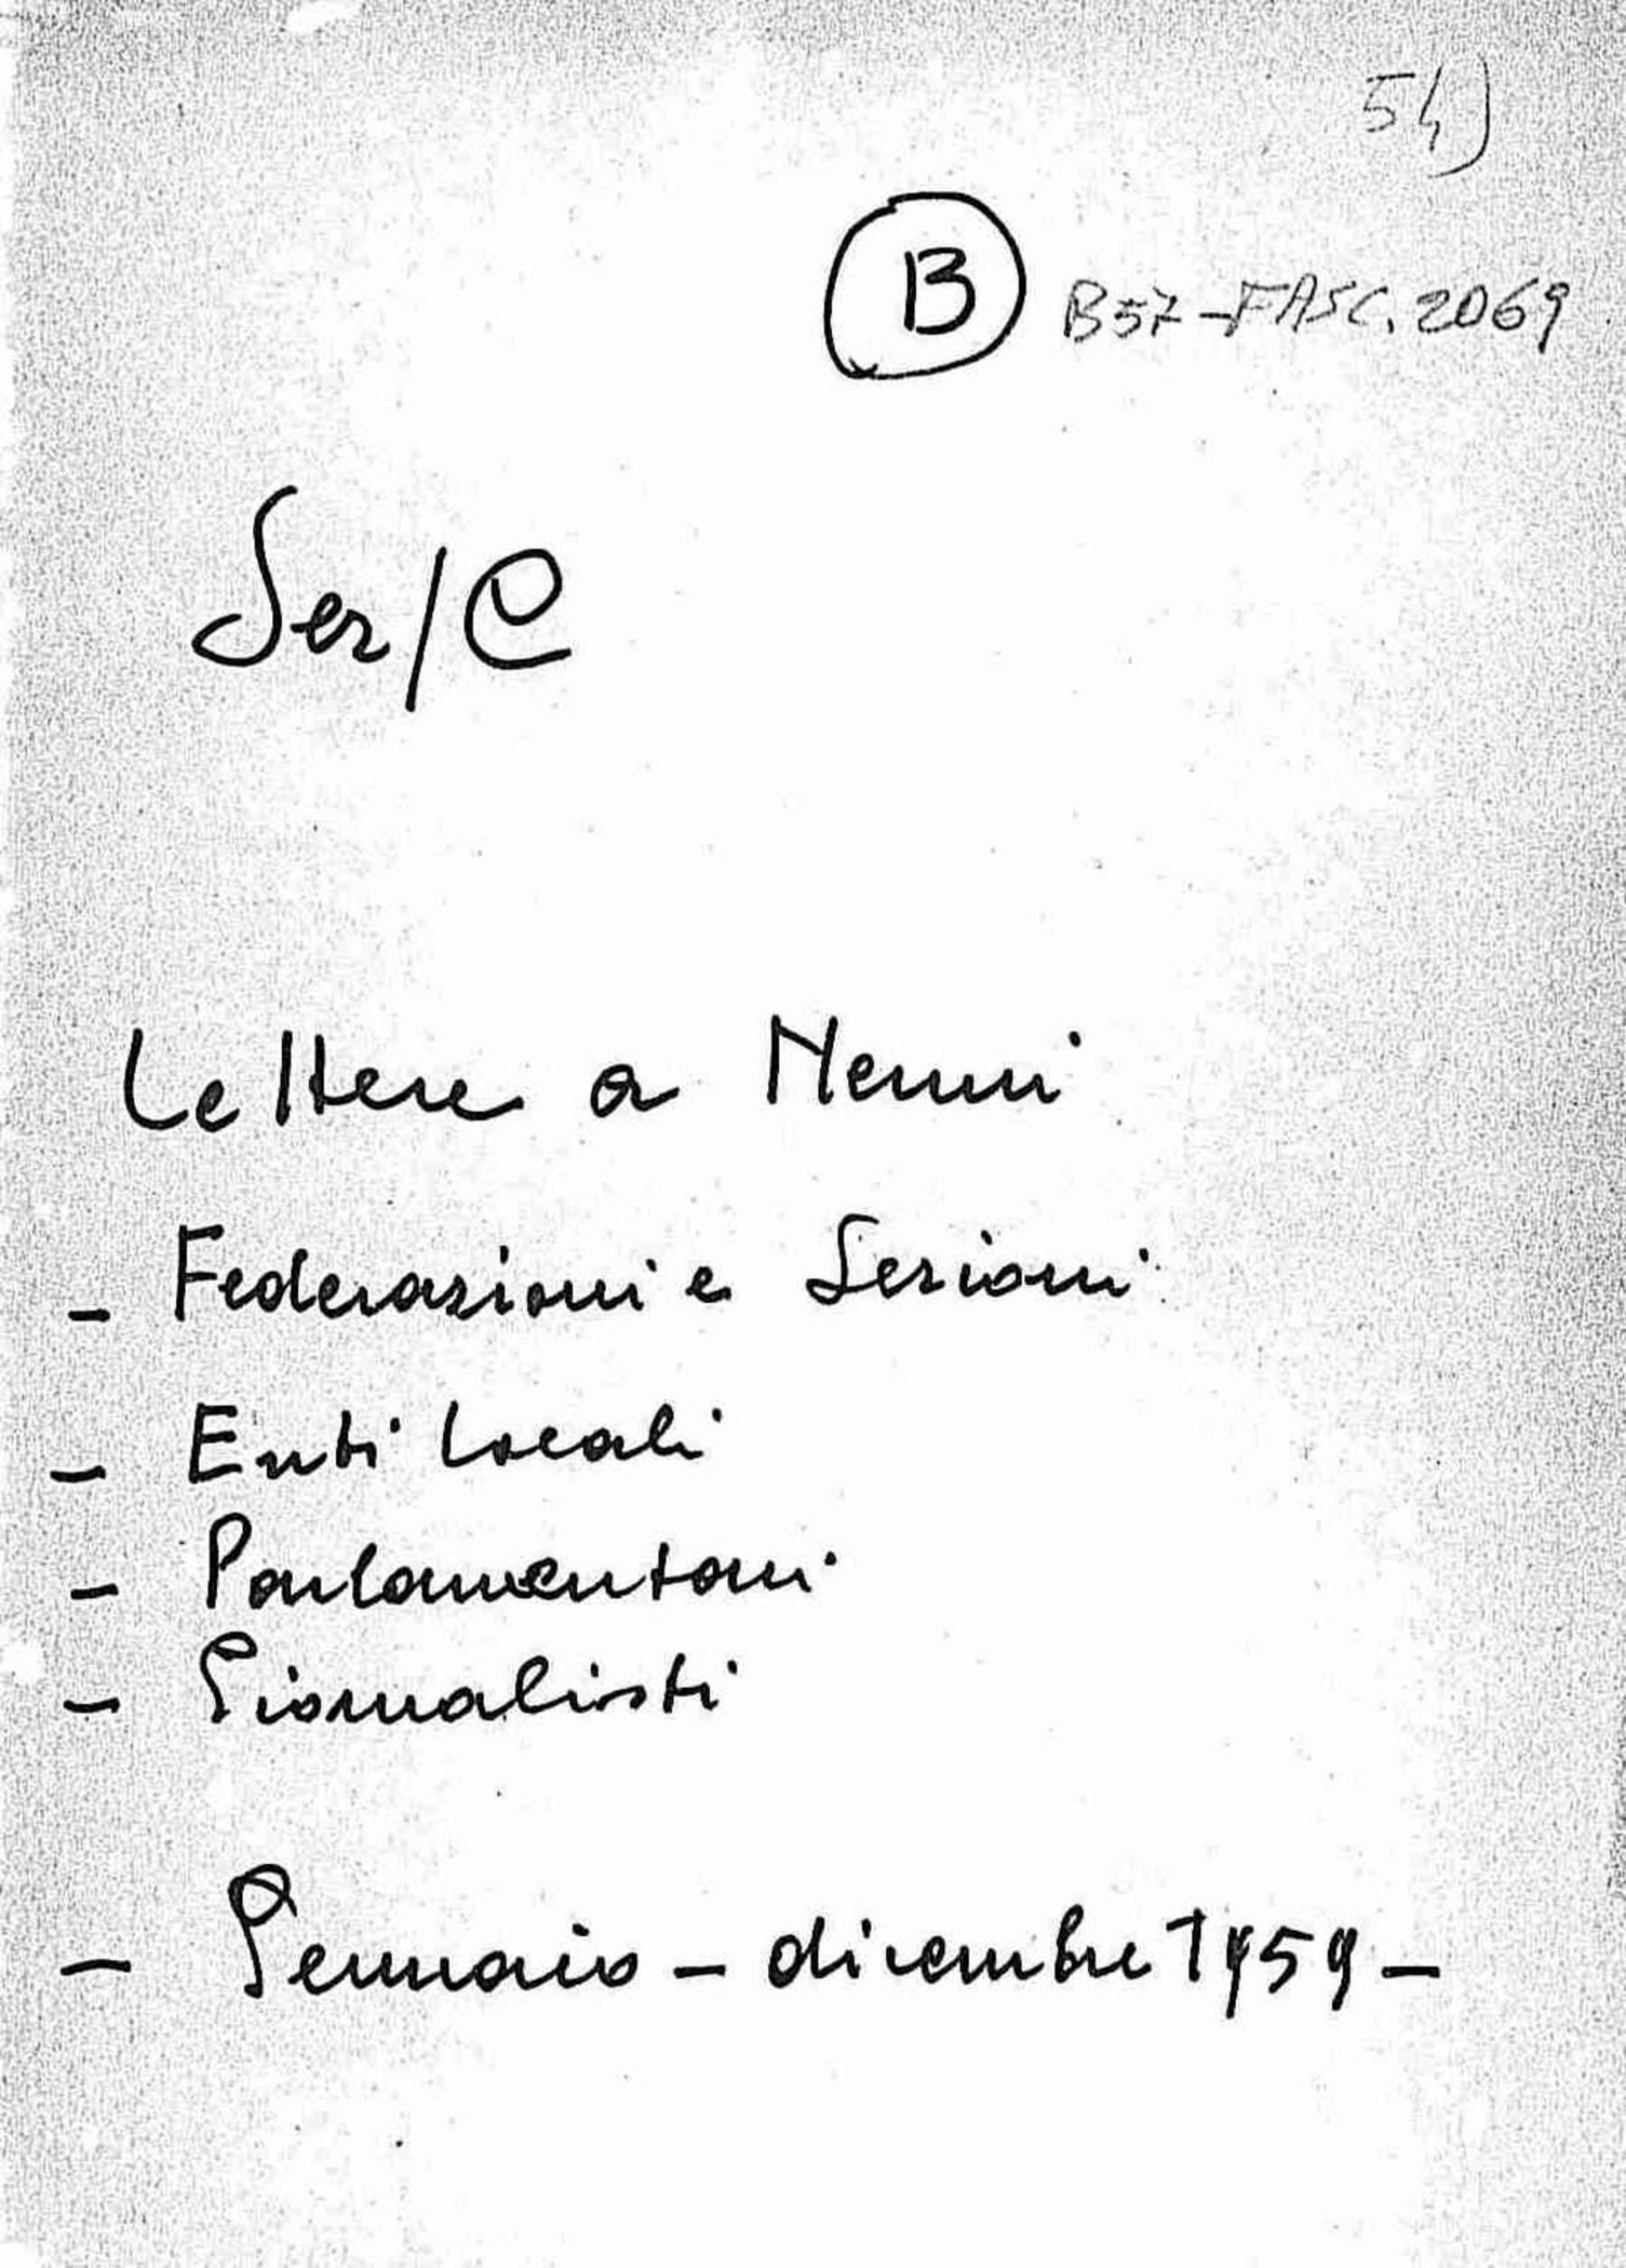 54)
B B57-FASC. 2069
Ser/C
Lettere a Nenni
- Federazioni e Sezioni
- Enti locali
- Parlamentari
- Giornalisti
- Gennaio - dicembre 1959 -